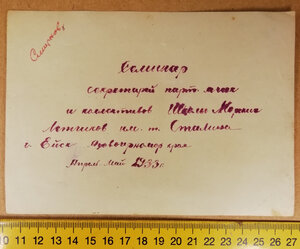 Смирнов,
Семинар
секретарей парт. ячеек
и коллективов Школы Морских
Летчиков им. т. Сталина
г. Ейск Азовочерномор края
Апрель Май 1933 г.
10 11 12 13 14 15 16 17 18 19 20 21 22 23 24 25 26 27